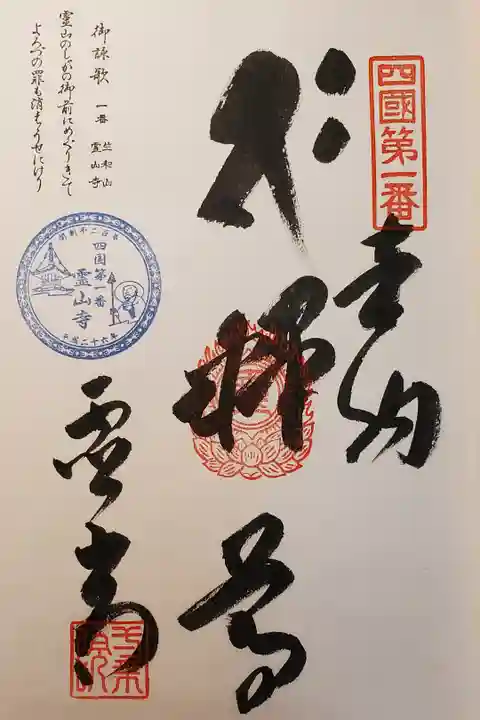 四國第一番
奉納
釋迦尊
霊山寺
御詠歌 一番 竺和山 霊山寺
霊山のしゃかの御前にめぐりきて
よろづの罪も消えうせにけり
開創千二百年
四国第一番
霊山寺
平成二十六年